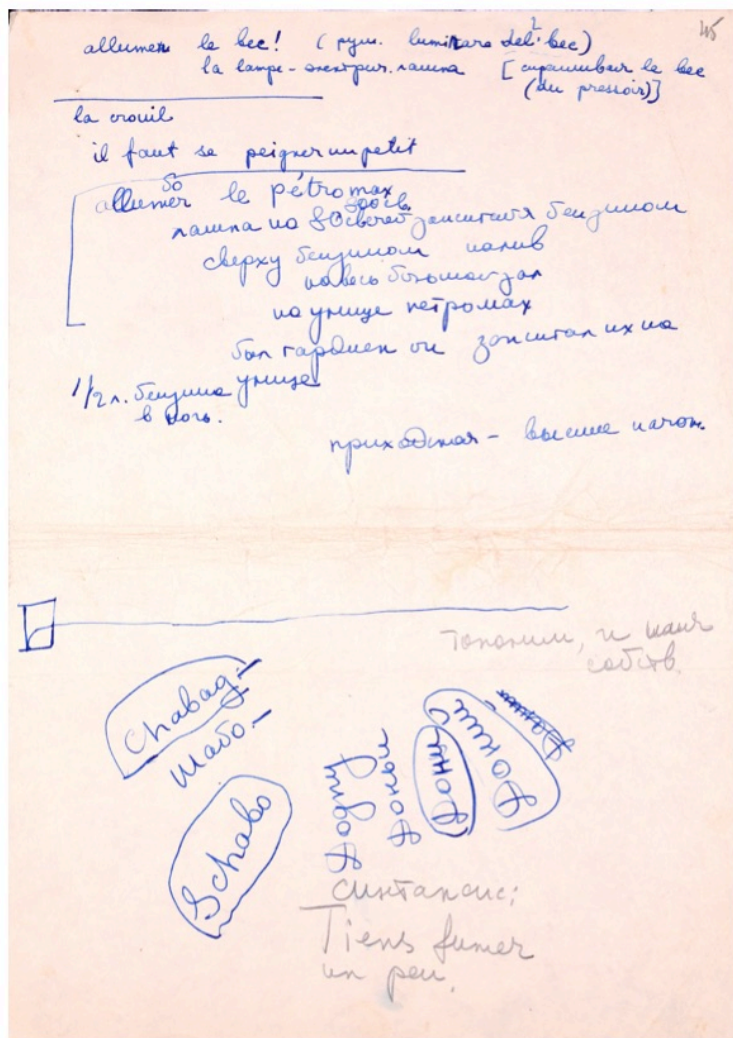 45
allumer le bec! (рум. luminara del bec)
la lampe - электрич. лампа [спрашивают le bec
(du pressoir)]
la crouil
il faut se peigner un petit
allumer le pétromax
лампа на 800 свечей зажигается бензином
сверху бензином налив
на весь большой зал
на улице петромах
был гардиен он зажигал их на
улице
1/2 л. бензина
в ночь.
приходская - высшее начал.
Топоним, и имя
собств.
Chabag -
Шабо -
Schabo
синтаксис:
Tiens fumer
un peu.